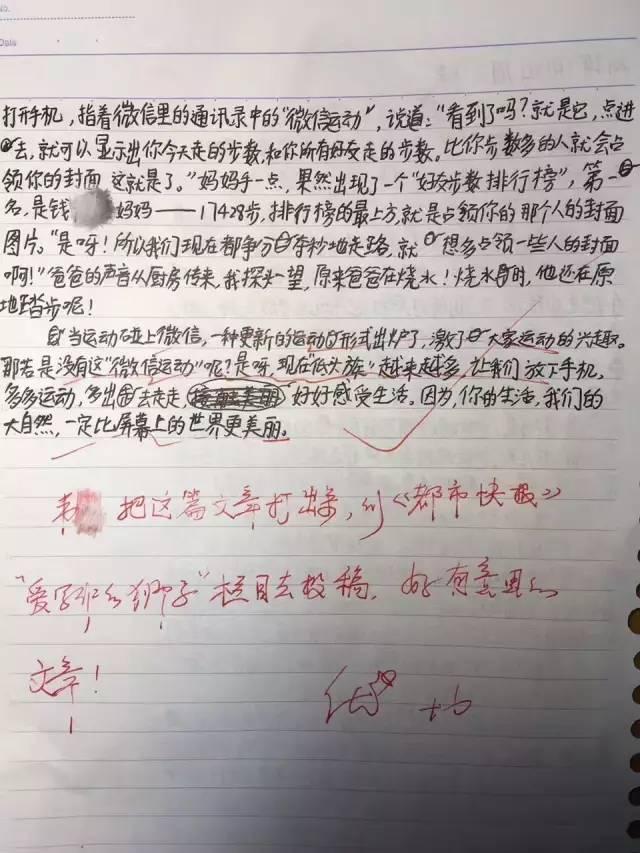 No.
Date
打开手机，指着微信里的通讯录中的“微信运动”，说道：“看到了吗？就是它，点进
去，就可以显示出你今天走的步数，和你所有好友走的步数。比你步数多的人就会占
领你的封面，这就是了。”妈妈手一点，果然出现了一个“好友步数排行榜”，第一
名，是钱 妈妈——17428步，排行榜的最上方，就是占领你的那个人的封面
图片。“是呀！所以我们现在都争分夺秒地走路，就想多占领一些人的封面
啊！”爸爸的声音从厨房传来，我探头一望，原来爸爸在烧水！烧水时，他还在原
地踏步呢！
当运动碰上微信，一种更新的运动形式出炉了，激了大家运动的兴趣。
那若是没有这“微信运动”呢？是呀，现在“低头族”越来越多，让我们放下手机，
多多运动，多出去走走，好好感受生活。因为，你的生活，我们的
大自然，一定比屏幕上的世界更美丽。
把这篇文章打出来，向《都市快报》
“爱写作的狮子”栏目去投稿，好有意思的
文章！
优